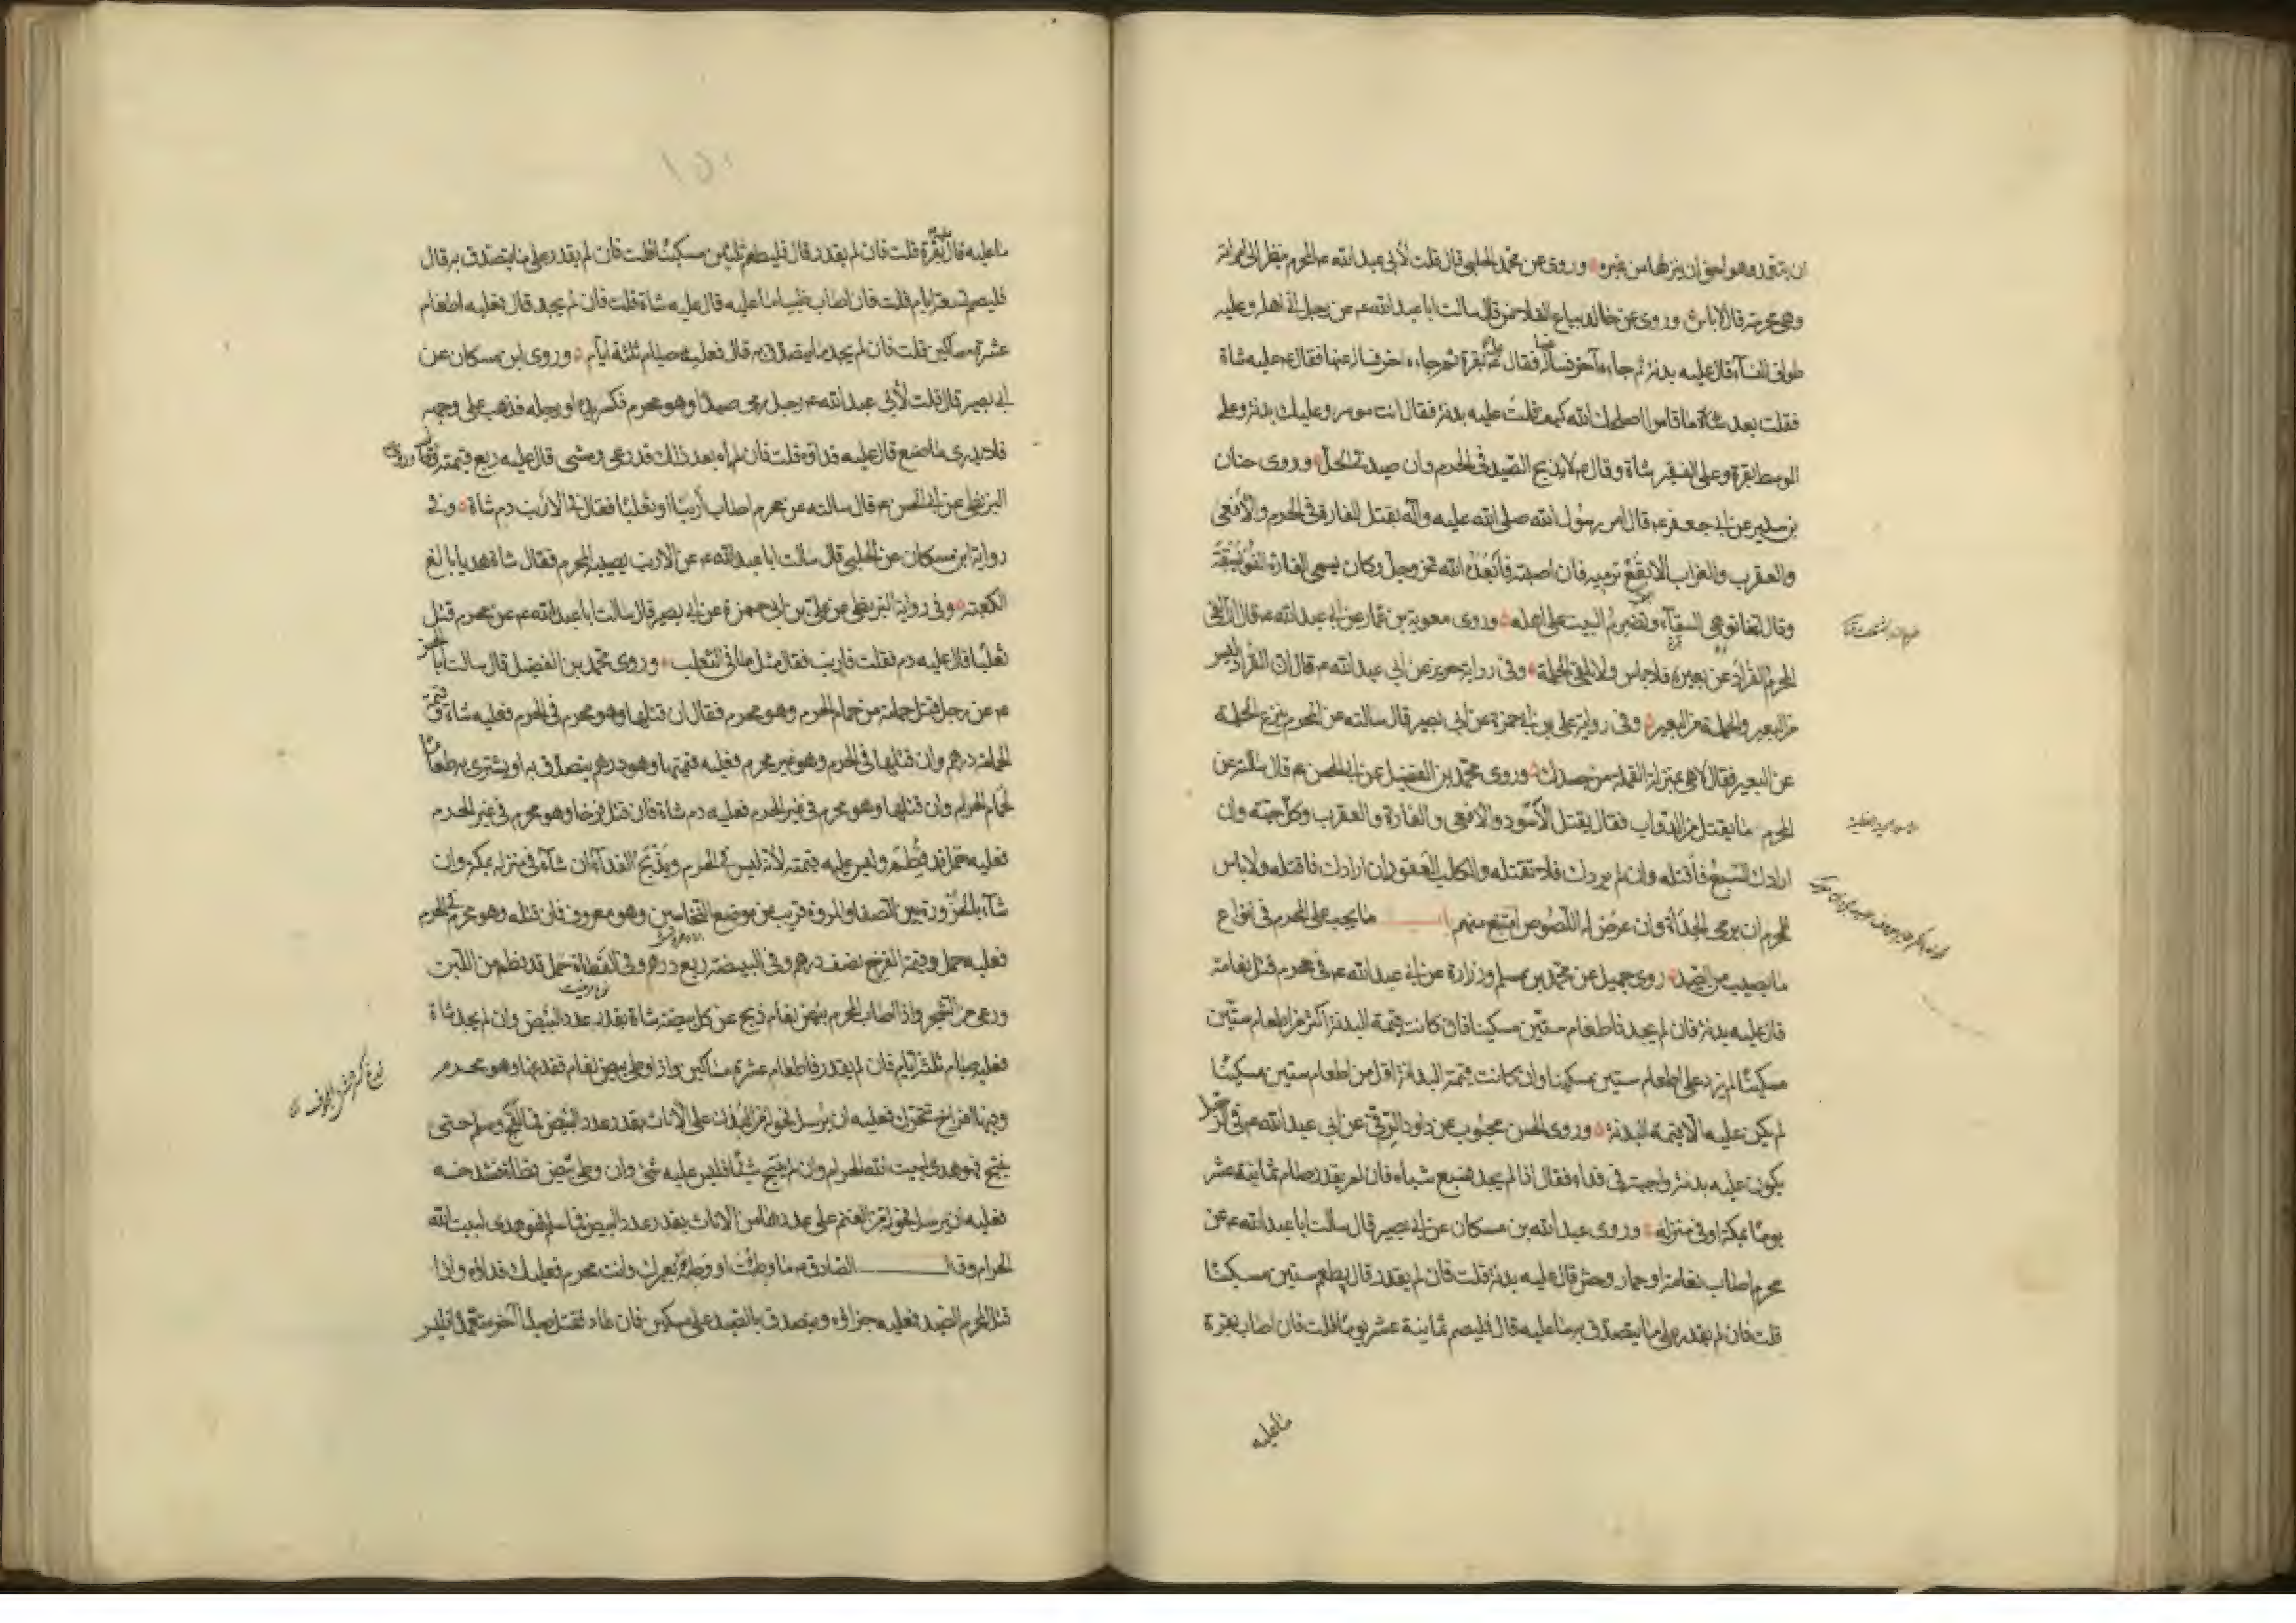 ان يتقدم وهو احق ان ينزلها من غيره وروى عن محمد الحلبي قال قلت لأبي عبد الله ع المحرم ينظر الى امراته
وهي محرمة قال لا باس وروى عن خالد بياع القلانس قال سالت ابا عبد الله ع عن رجل اتى اهله وعليه
طواف النساء قال عليه بدنة ثم جاءه آخر فساله عنها فقال عليه بقرة ثم جاءه اخر فساله عنها فقال ع عليه شاة
فقلت بعد ما قاموا اصلحك الله كيف قلت عليه بدنة فقال انت موسر وعليك بدنة وعلى
الوسط بقرة وعلى الفقير شاة وقال ع لا يذبح الصيد في الحرم وان صيد في الحل وروى حنان
بن سدير عن ابي جعفر ع قال امر رسول الله صلى الله عليه وآله بقتل الفارة في الحرم والأفعى
والعقرب والغراب الابقع ترميه فان اصبته فأبعده الله عز وجل وكان يسمى الفارة الفويسقة
وقال انها توهي السقاء وتضرم البيت على اهله وروى معوية بن عمار عن ابي عبد الله ع قال ان القى
المحرم القراد عن بعيره فلا باس ولا يلقى الحلمة وفى رواية حريز عن ابي عبد الله ع قال ان القراد ليس
من البعير والحلمة من البعير وفى رواية علي بن ابي حمزة عن ابي بصير قال سالته عن المحرم ينزع الحلمة
عن البعير فقال لا هي بمنزلة القملة من جسدك وروى محمد بن الفضيل عن ابي الحسن ع قال سالته عن
المحرم ما يقتل من الدواب فقال يقتل الأسود والافعى والفارة والعقرب وكل حية وان
ارادك السبع فأقتله وان لم يردك فلا تقتله والكلب العقور ان ارادك فاقتله ولا باس
للمحرم ان يرمى الحدأة وان عرض له اللصوص امتنع منهم ما يجب على المحرم في انواع
ما يصيب من الصيد روى جميل عن محمد بن مسلم وزرارة عن ابي عبد الله ع في محرم قتل نعامة
قال عليه بدنة فان لم يجد فاطعام ستين مسكينا فان كانت قيمة البدنة اكثر من اطعام ستين
مسكينا لم يزد على اطعام ستين مسكينا وان كانت قيمة البدنة اقل من اطعام ستين مسكينا
لم يكن عليه الا قيمة البدنة وروى الحسن بن محبوب عن داود الرقي عن ابي عبد الله ع في الرجل
يكون عليه بدنة واجبة في فداء فقال اذا لم يجد فسبع شياه فان لم يقدر صام ثمانية عشر
يوما بمكة او في منزله وروى عبد الله بن مسكان عن ابي بصير قال سالت ابا عبد الله ع عن
محرم اصاب نعامة او حمار وحش قال عليه بدنة قلت فان لم يقدر قال يطعم ستين مسكينا
قلت فان لم يقدر على ما يتصدق به ما عليه قال فليصم ثمانية عشر يوما قلت فان اصاب بقرة
ما عليه
ما عليه قال عليه بقرة قلت فان لم يقدر قال فليطعم ثلثين مسكينا قلت فان لم يقدر على ما يتصدق به قال
فليصم تسعة ايام قلت فان اصاب ظبيا ما عليه قال عليه شاة قلت فان لم يجد قال فعليه اطعام
عشرة مساكين قلت فان لم يجد ما يتصدق به قال فعليه صيام ثلثة ايام وروى ابن مسكان عن
ابي بصير قال قلت لأبي عبد الله ع رجل رمى صيدا وهو محرم فكسر يده او رجله فذهب على وجهه
فلا يدرى ما صنع قال عليه فداؤه قلت فان رآه بعد ذلك قد رعى ومشى قال عليه ربع قيمته وروى
البزنطي عن ابي الحسن ع قال سالته عن محرم اصاب أرنبا او ثعلبا فقال في الارنب دم شاة وفى
رواية ابن مسكان عن الحلبي قال سالت ابا عبد الله ع عن الارنب يصيبه المحرم فقال شاة هديا بالغ
الكعبة وفى رواية البزنطي عن علي بن ابي حمزة عن ابي بصير قال سالت ابا عبد الله ع عن محرم قتل
ثعلبا قال عليه دم فقلت فارنب فقال مثل ما في الثعلب وروى محمد بن الفضيل قال سالت ابا الحسن
ع عن رجل قتل حمامة من حمام الحرم وهو محرم فقال ان قتلها وهو محرم في الحرم فعليه شاة وقيمة
الحمامة درهم وان قتلها في الحرم وهو غير محرم فعليه قيمتها وهو درهم يتصدق به او يشترى به طعاما
لحمام الحرم وان قتلها وهو محرم في غير الحرم فعليه دم شاة فان قتل فرخا وهو محرم في غير الحرم
فعليه حمل قد فطم وليس عليه قيمته لأنه ليس في الحرم ويذبح الفداء ان شاء في منزله بمكة وان
شاء بالحزورة بين الصفا والمروة قريب من موضع النخاسين وهو معروف فان قتله وهو محرم في الحرم
فعليه حمل وقيمة الفرخ نصف درهم وفى البيضة ربع درهم وفى القطاة حمل قد فطم من اللبن
ورعى من الشجر واذا اصاب المحرم بيض نعام ذبح عن كل بيضة شاة بقدر عدد البيض وان لم يجد شاة
فعليه صيام ثلثة ايام فان لم يقدر فاطعام عشرة مساكين واذا وطى بيض نعام ففدغها وهو محرم
وفيها افراخ تتحرك فعليه ان يرسل فحولة من البدن على الاناث بقدر عدد البيض فما لقح وسلم حتى
ينتج فهو هدى لبيت الله الحرام وان لم ينتج شيئا فليس عليه شئ وان وطى بيض قطاة فشدخه
فعليه ان يرسل فحولة من الغنم على عددها من الاناث بقدر عدد البيض فما سلم فهو هدى لبيت الله
الحرام وقال الصادق ع ما وطئت او وطئه بعيرك وانت محرم فعليك فداؤه واذا
قتل المحرم الصيد فعليه جزاؤه ويتصدق بالصيد على مسكين فان عاد فقتل صيدا آخر متعمدا فليس